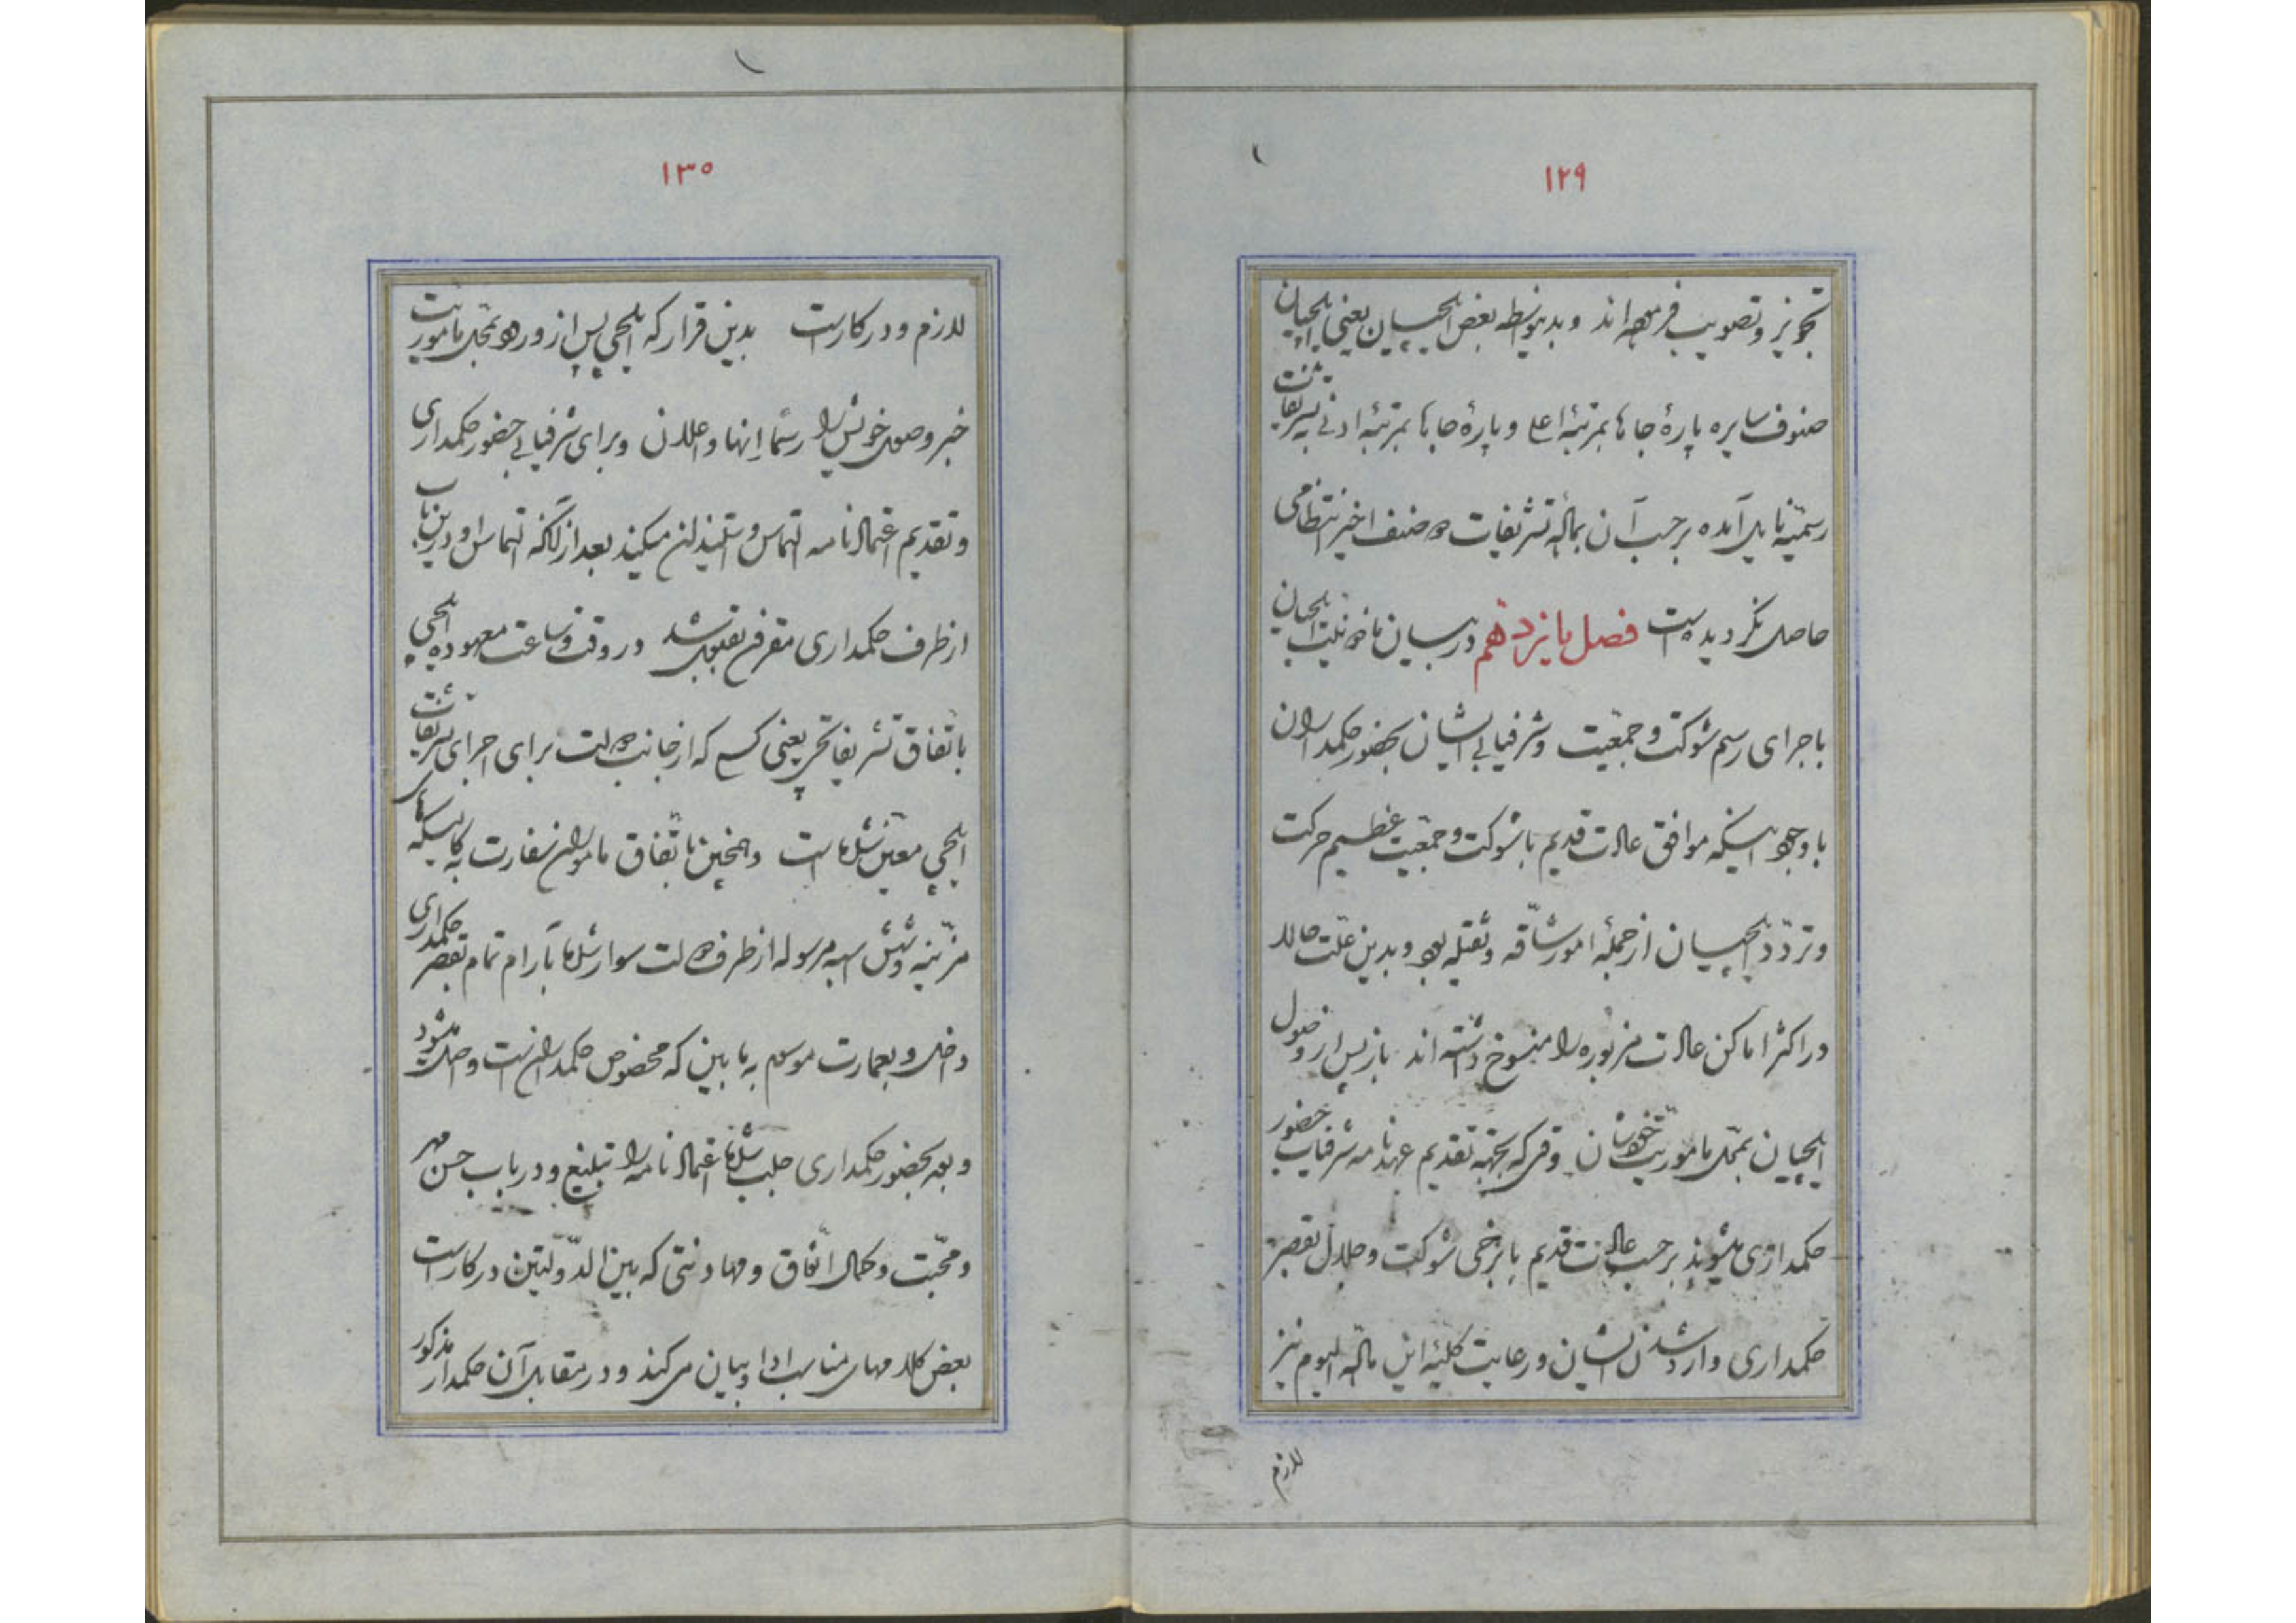 ۱۲۹
تجویز و تصویب فرموده‌اند و بدینواسطه بعض ایلچییان یعنی ایلچیان
صنوف سایره پارهٔ جاها بمرتبهٔ اعلا و پارهٔ جاها بمرتبهٔ ادنی به تشریفات
رسمیّه نایل آمده برحسب آن بمآله تشریفات دو صنف اخیر انتظامی
حاصل نگردیده است فصل پانزدهم در بیان مأذونیت ایلچیان
باجرای رسم شوکت و جمعیّت و شرفیابی ایشان بحضور حکمداران
با وجود اینکه موافق عادات قدیم با شوکت و جمعیّت عظیم حرکت
و تردّد ایلچییان از جملهٔ امور شاقّه و ثقیله بود و بدین علّت حالا
در اکثر اماکن عادات مزبوره را منسوخ داشته‌اند باز پس از وصول
ایلچییان بمحل مأموریت خودشان وقتی که بجهة تقدیم عهدنامه شرفیاب حضور
حکمداری میشوند برحسب عادات قدیم با برخی شوکت و جلال بقصر
حکمداری وارد شدن ایشان و رعایت کلیهٔ این مآله الیوم نیز
لازم
۱۳۰
لازم و درکار است بدین قرار که ایلچی پس از ورود بمحل مأموریت
خبر وصول خویش را رسماً انها و اعلان و برای شرفیابی حضور حکمداری
و تقدیم اعتمادنامه التماس و استیذان میکند بعد از آنکه التماس او در این باب
از طرف حکمداری مقرون بقبول شد در وقت و ساعت معهوده ایلچی
باتّفاق تشریفاتچی یعنی کسی که از جانب دولت برای اجرای تشریفات
ایلچی معیّن شده است و همچنین باتّفاق مأموران سفارت به کالسکهای
مزیّنه و شش اسبه مرسوله از طرف دولت سوار شده بآرام تمام بقصر حکمداری
داخل و بعمارت موسوم به مابین که مخصوص حکمدارانست واصل میشود
و بعد بحضور حکمداری جلب شده اعتمادنامه را تبلیغ و در باب حسن مهر
و محبّت و کمال اتّفاق و مهادنتی که بین الدّولتین درکار است
بعض کلامهای مناسب ادا و بیان میکند و در مقابل آن حکمدار مذکور